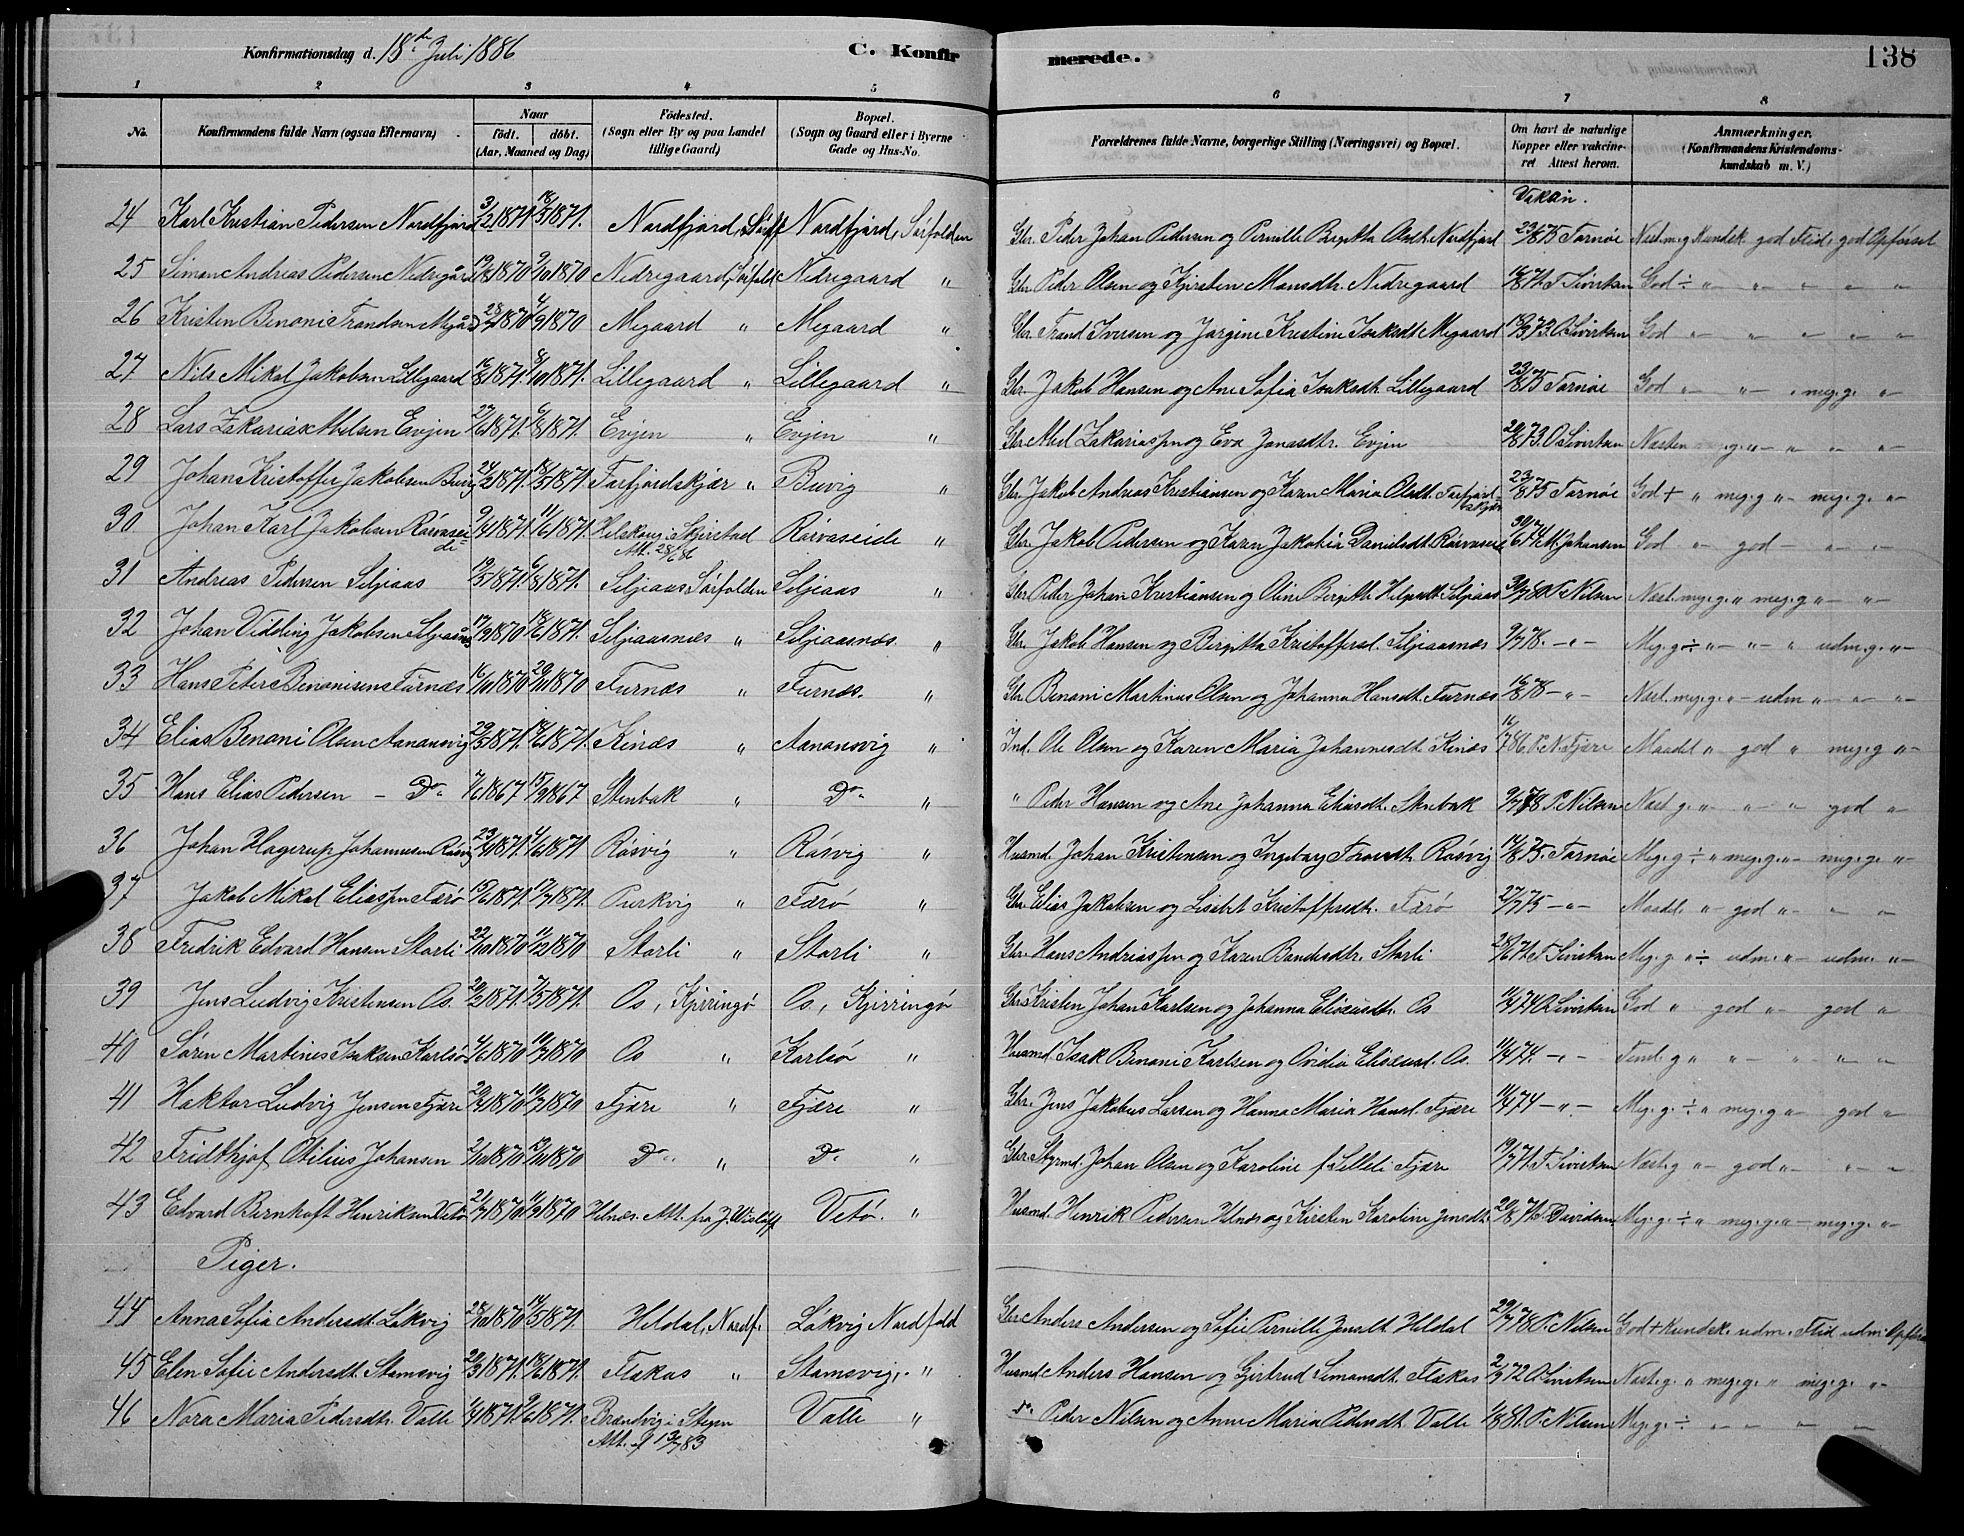 Konfirmationsdag d. 18de Juli 1886 C. Konfirmerede. 138
1 2 3 4 5 6 7 8
No. Konfirmandens fulde Navn (ogsaa Efternavn) Naar født. døbt. (Aar, Maaned og Dag) Fødested. (Sogn eller By og paa Landet tillige Gaard) Bopæl. (Sogn og Gaard eller i Byerne Gade og Hus-No. Forældrenes fulde Navne, borgerlige Stilling (Næringsvei) og Bopæl. Om havt de naturlige Kopper eller vakcineret Attest herom. Anmærkninger. (Konfirmandens Kristendomskundskab m. V.)
Vakcin.
24 Karl Kristian Pedersen Nordfjord 3/2 1871. 18/5 1871. Nordfjord, Sørf. Nordfjord, Sørfolden Gbr. Peder Johan Pedersen og Pernille Birgitha Olsdt. Nordfjord 23/8 75 Farnøe Næst. m. g. Kundsk. god Flid, god Opførsel
25 Simon Andreas Pedersen Nedregård 19/8 1870 9/10 1870 Nedregaard, Sørfold Nedregaard " Gbr. Peder Olsen og Kjersten Monsdtr. Nedregaard 16/8 71. T. Sivertsen God ÷ " " " " "
26 Kristen Benoni Trondsen Megård 28/7 1870 4/9 1870 Megaard " Megaard " Gbr. Trond Iversen og Jørgine Kristine Isaksdt. Megaard 18/9 73. O. Sivertsen God " " " " "
27 Nils Mikal Jakobsen Lillegaard 16/8 1871. 8/10 1871. Lillegaard " Lillegaard " Gbr. Jakob Hansen og Ane Sofia Isaksdt. Lillegaard 23/8 75 Farnøe God " " " meg. g. "
28 Lars Zakarias Abelsen Evjen 27/6 1871. 6/8 1871. Evjen " Evjen " Gbr. Abel Zakariassen og Eva Jonasdtr. Evjen 20/8 73. O. Sivertsen Næsten m. g. " " " "
29 Johan Kristoffer Jakobsen Buvig 24/2 1871. 18/5 1871. Farfjordskjær " Buvig " Gbr. Jakob Andreas Kristiansen og Karen Maria Olsdt. Farfjordskjær 23/8 75 Farnøe God + " meg. g " meg. g. "
30 Johan Karl Jakobsen Rørvaseide 9/4 1871. 11/6 1871. Helskog i Skjerstad Att. 28/6 86 Rørvaseide " Gbr. Jakob Pedersen og Karen Jakobia Danielsdt. Rørvaseide 30/6 74 M. Johansen God " god " " "
31 Andreas Pedersen Seljeaas 19/5 1871. 6/8 1871. Seljeaas Sørfolden Seljeaas " Gbr. Peder Johan Kristiansen og Oline Birgitte Helgesdt. Seljeaas 30/7 80. P. Nilsen Næst. meg. g. " meg. g " "
32 Johan Vidding Jakobsen Seljeaasnæs 17/9 1870 18/6 1871. Seljeaasnæs " Seljeaasnæs. " Gbr. Jakob Hansen og Birgitha Kristoffersd. Seljeaasnæs 9/7 78. " Meg. g ÷ " " " udm. g. "
33 Hans Peter Benonisen Furnæs 16/10 1870 20/11 1870 Furnæs " Furnæs. " Gbr. Benoni Martinus Olsen og Johanna Hansdt. Furnæs 16/8 78 " Næst. meg. g. " udm " " "
34 Elias Benoni Olsen Aanansvig 29/3 1871. 18/6 1871. Kinæs " Aanansvig " Ind. Ole Olsen og Karen Maria Johannesdt. Kinæs 16/7 86. P. N. Fjære Maadel. " god " meg. g "
35 Hans Elias Pedersen – Do 7/6 1867 15/9 1867 Stenbak " Do " " Peder Hansen og Ane Johanna Eliasdt. Stenbak 9/7 78 P. Nilsen Næst. g. " " " god "
36 Johan Hagerup Johannesen Røsvig 23/4 1871. 4/6 1871 Røsvig " Røsvig " Husmd. Johan Kristensen og Ingeborg Trondsdt. Røsvig 14/8 75. Farnøe Meg. g ÷ " meg. g. " meg. g. "
37 Jakob Mikal Eliassen Færø 15/6 1871. 17/7 1871. Purkvig " Færø " Gbr. Elias Jakobsen og Lisabet Kristoffersdt. Færø 27/7 75 " Maadel. " god " " "
38 Fredrik Edvard Hansen Storli 22/10 1870 11/12 1870 Storli " Storli " Gbr. Hans Andreassen og Karen Bendersdtr. Storli 28/6 71. T. Sivertsen Meg. g " ÷ udm. " udm. "
39 Jens Ludvig Kristensen Os. 20/2 1871. 7/5 1871. Os, Kjerringø Os, Kjerringø Gbr. Kristen Johan Karlsen og Johanna Eliseusdtr. Os 11/4 74 O. Sivertsen God " god " god "
40 Søren Martines Isaksen Karlsø 4/6 1870 10/7 1870 Os " Karlsø " Husmd. Isak Benoni Karlsen og Ovidia Eliseusd. Os. 11/4 74. " Temel. g " " " " "
41 Haktor Ludvig Jensen Fjære 20/4 1870 10/7 1870 Fjære " Fjære " Gbr. Jens Jakobus Larsen og Hanna Maria Hansd. Fjære 11/4 74 " Meg. g. ÷ " meg. g " god "
42 Fridthjof Otilius Johansen 2/10 1870 13/11 1870 Do " Do " Gbr. Styrmd. Johan Olsen og Karoline f. Lilleli Fjære 19/7 71. T. Sivertsen Næst. g " god " " "
43 Edvard Bernhoft Henriksen Vetø 21/7 1870 11/9 1870 Helnæs. Att. fra J. Wisløff Vetø. " Husmd. Henrik Pedersen Helnæs og Kirsten Karoline Jensdt. 20/8 71. Davidsen Meg. g. ÷ " meg. g. " meg. g. "
Piger.
44 Anna Sofia Andersdt. Løkvig 28/10 1870 14/5 1871. Heldal, Nordf. Løkvig Nordfold Gbr. Anders Andersen og Sofie Pernille Jensdt. Heldal 29/7 78 P. Nilsen God + Kundsk. udm. Flid udm. Opførsel
45 Elen Sofie Andersdt. Stamsvig 20/3 1871. 18/6 1871. Flakas " Stamsvig, " Husmd. Anders Hansen og Gjertrud Simonsdt. Flakas 2/9 72 O. Sivertsen Næst. g. " meg. g. " meg. g. "
46 Nora Maria Pedersdtr. Valle 1/4 1871. 9/6 1871. Brandvig i Stegen Att. af 13/7 83 Valle " do. Peder Nilsen og Anne Maria Pedersdt. Valle 1/8 81. P. Nilsen Meg. g. ÷ " " " "